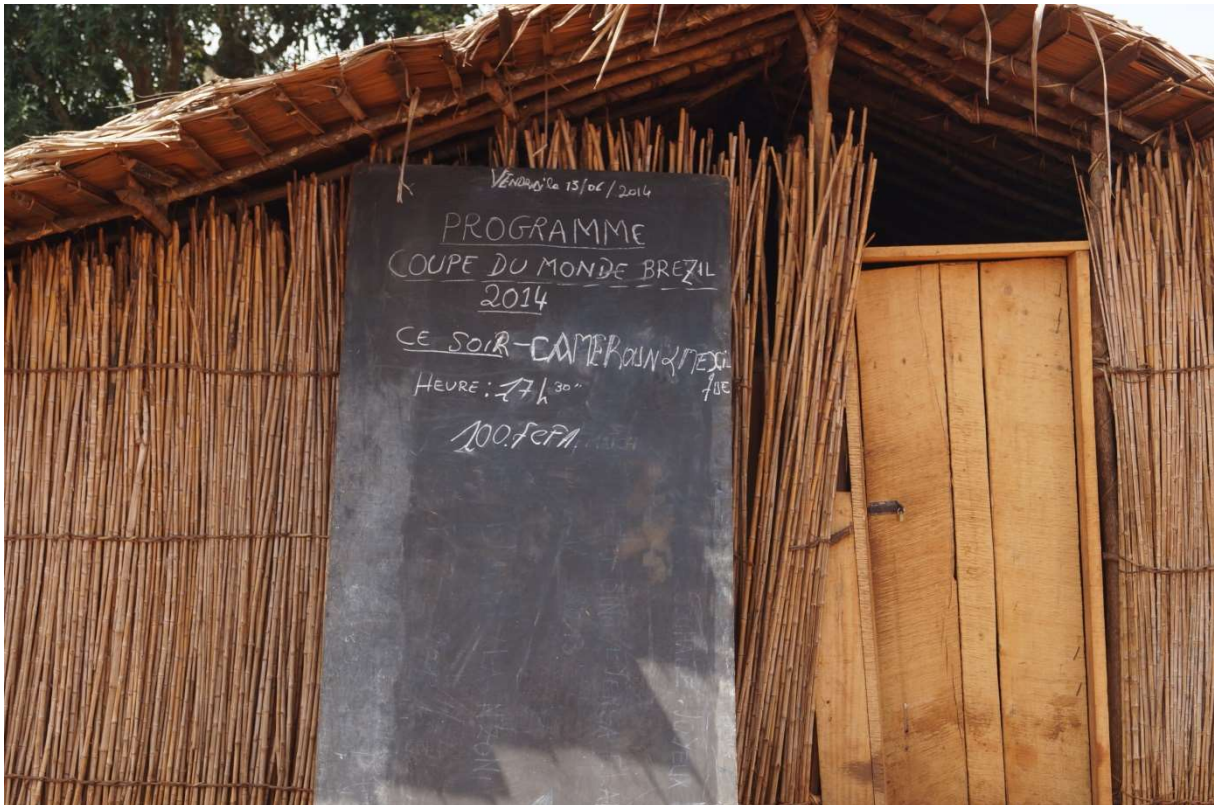 VENDREDi le 13/06/2014
PROGRAMME
COUPE DU MONDE BREZIL
2014
CE SOIR-CAMEROUN & MEXI
QUE
HEURE: 17h 30''
100.FCFA.